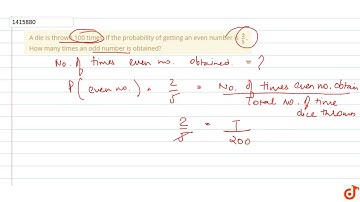 1415880
A die is thrown 100 times. If the probability of getting an even number is 2/5.
How many times an odd number is obtained?
No. of times even no. obtained = ?
P(even no.) = 2/5 = No. of times even no. obtain
Total no. of time
dice throws
2/5 = T/200